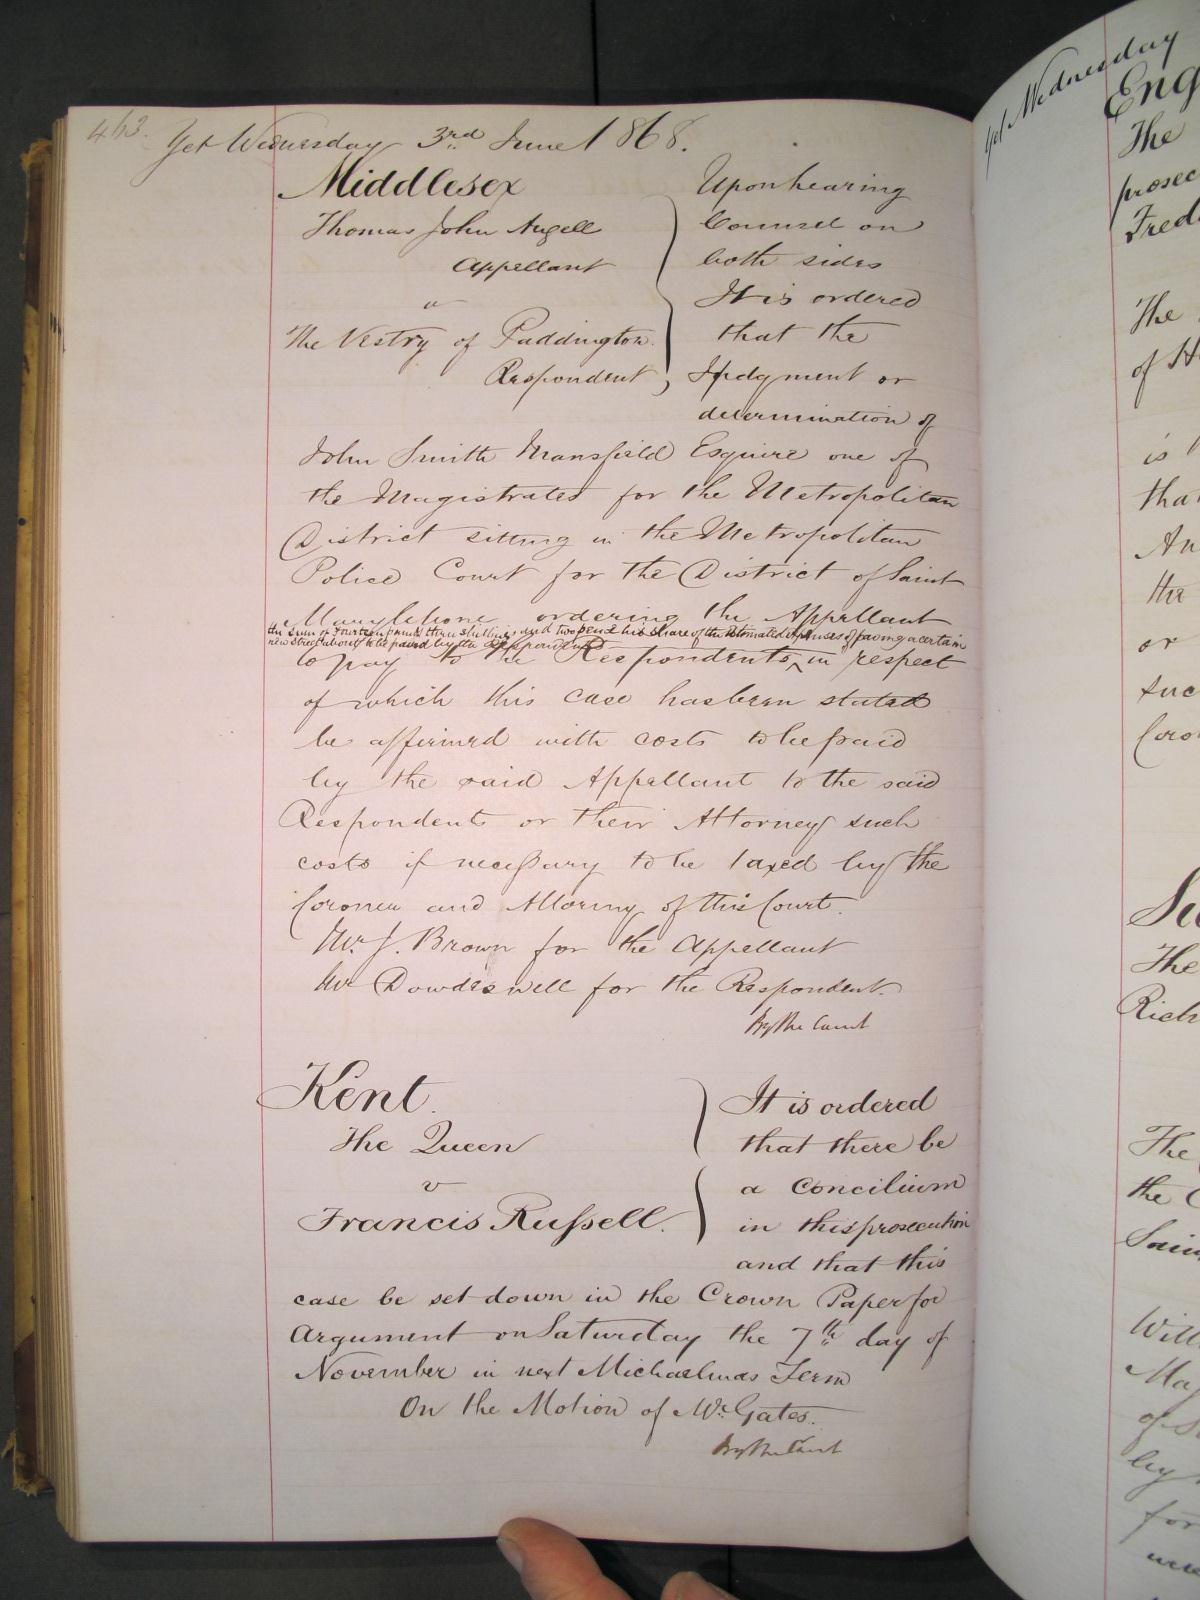 463.
Yet Wednesday 3rd June 1868.
Middlesex
Thomas John Angell
Appellant
v
The Vestry of Paddington.
Respondent
Upon hearing
Counsel on
both sides
It is ordered
that the
Judgment or
determination of
John Smith Mansfield Esquire one of
the Magistrates for the Metropolitan
District sitting in the Metropolitan
Police Court for the District of Saint
Marylebone ordering the Appellant
the sum of Fourteen pounds three shillings and two pence his share of the estimated expenses of paving a certain
new street about to be paved by the Respondents
to pay to the Respondents in respect
of which this case has been stated
be affirmed with costs to be paid
by the said Appellant to the said
Respondents or their Attorney such
costs if necessary to be taxed by the
Coroner and Attorney of this Court.
Mr J. Brown for the Appellant
Mr Dowdeswell for the Respondent.
By the Court
Kent.
The Queen
v
Francis Russell.
It is ordered
that there be
a Concilium
in this prosecution
and that this
case be set down in the Crown Paper for
Argument on Saturday the 7th day of
November in next Michaelmas Term
On the Motion of Mr Gates.
By the Court
Yet Wednesday
Eng
The
prosec
Fred
The
of
is
that
An
the
or
suc
Coro
Su
The
Rich
The
the
Sain
Will
Maj
of
by
for